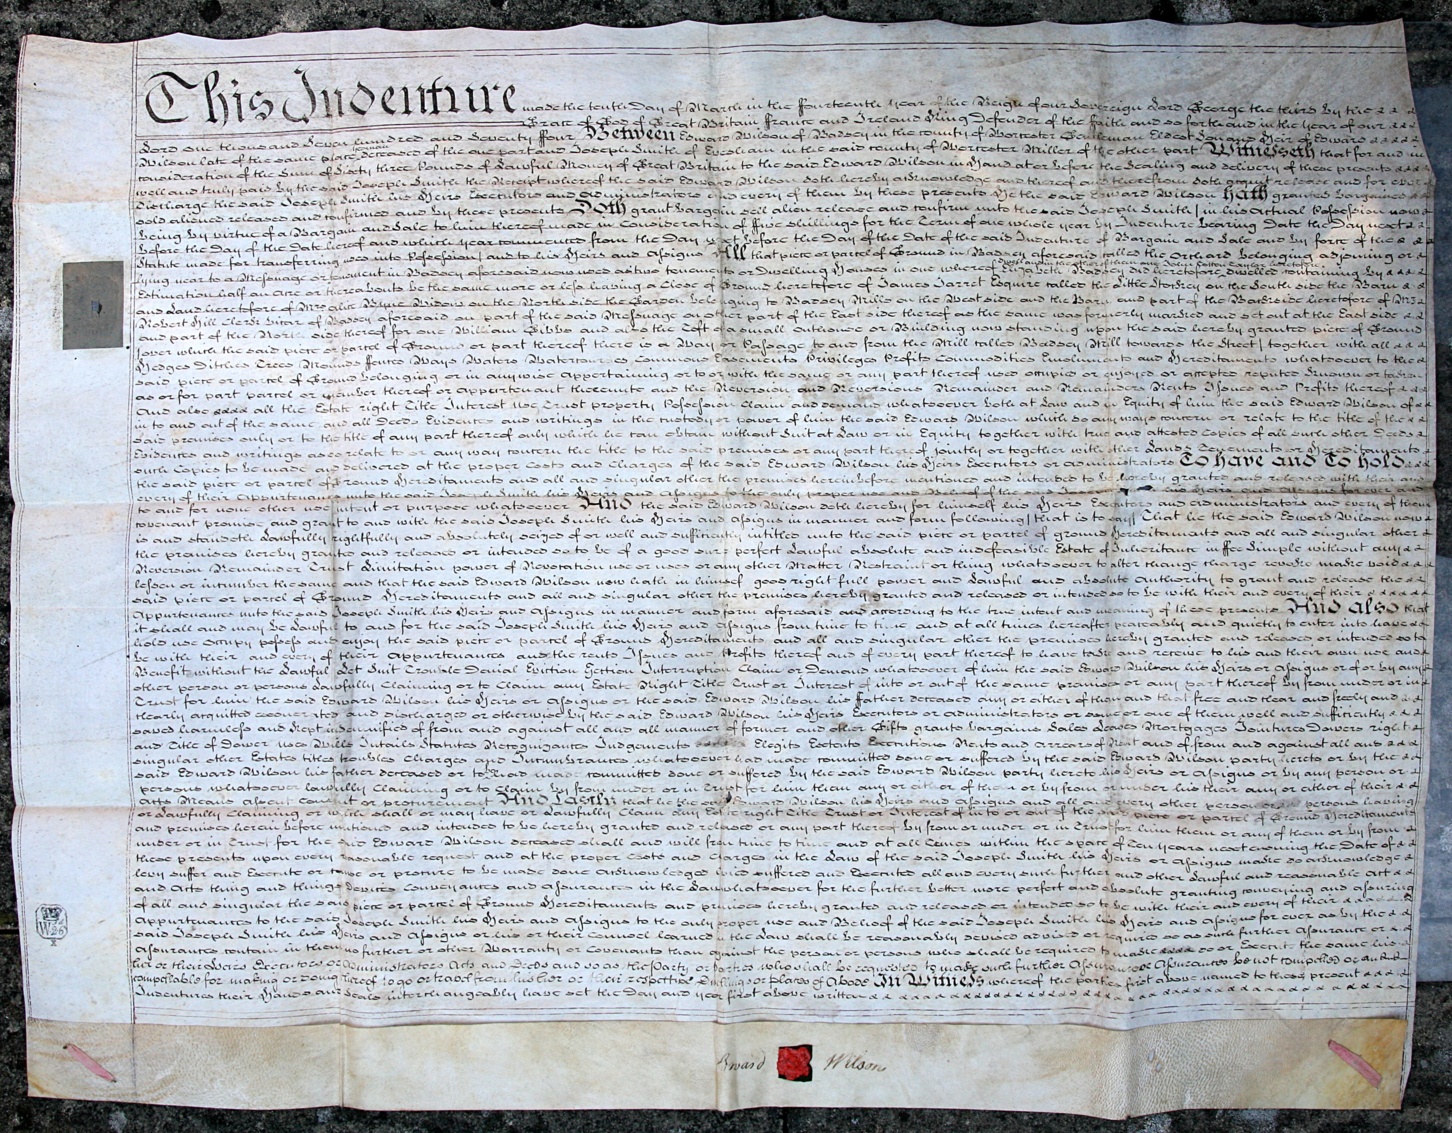 This Indenture made the tenth Day of March in the ffourteenth Year of the Reign of our Sovereign Lord George the third by the
Grace of God of Great Britain ffrance and Ireland King Defender of the ffaith and so forth and in the year of our
Lord one thousand Seven hundred and Seventy ffour Between Edward Wilson of Badsey in the County of Worcester Eldest Son and Heir of Edward
Wilson late of the same place deceased of the one part and Joseph Smith of Evesham in the said county of Worcester Miller of the other part Witnesseth that for and in
consideration of the Sum of Sixty three Pounds of Lawful Money of Great Britain to the said Edward Wilson in Hand at or before the Sealing and delivery of these presents
well and truly paid by the said Joseph Smith the Receipt whereof the said Edward Wilson doth hereby acknowledge and thereof and therefrom doth release and for ever
Discharge the said Joseph Smith his Heirs Executors and Administrators and every of them by these presents He the said Edward Wilson Hath granted bargained
sold aliened released and confirmed and by these presents Doth grant bargain sell alien release and confirm unto the said Joseph Smith in his Actual Possession now
being by virtue of a Bargain and Sale to him thereof made in Consideration of ffive Shillings for the Term of one whole year by Indenture bearing Date the Day next
before the Day of the Date hereof and which year commenced from the Day next before the Day of the Date of the said Indenture of Bargain and Sale and by force of the
Statute made for transferring uses into Possession and to his Heirs and Assigns All that piece or parcel of Ground in Badsey aforesaid called the Orchard belonging adjoining or
lying near to a Messuage or Tenement in Badsey aforesaid now used as two tenements or Dwelling Houses in one whereof Elizabeth Badsey did heretofore dwell containing by
Estimation half an acre or thereabouts be the same more or less having a Close of Ground heretofore of James Jarret Esquire called the little Hockey on the South side the Barn
and Land heretofore of Byrne Widow on the North side the Garden belonging to Badsey Mills on the West side and the Barn and part of the Backside heretofore of Mr
Robert Hill Clerk Vicar of Badsey aforesaid on part of the said Messuage on other part of the East side thereof as the same was formerly marked and set out at the East side
and part of the North side thereof for one William Gibbs and also the Loft a small outhouse or Building now standing upon the said hereby granted piece of Ground
over which the said piece or parcel of Ground or part thereof there is a Way or Passage to and from the Mill called Badsey Mill towards the Street together with all
Hedges Ditches Trees Mounds ffences Ways Waters Watercourses Commons Easements Privileges Profits Commodities Emoluments and Hereditaments whatsoever to the
said piece or parcel of Ground belonging or in any wise appertaining or to or with the same or any part thereof used occupied or enjoyed or accepted reputed known or taken
as or for part parcel or member thereof or appurtenant thereunto and the Reversion and Reversions Remainder and Remainders Rents Issues and Profits thereof
And also all the Estate right Title Interest use Trust property Possession Claim and demand whatsoever both at Law and in Equity of him the said Edward Wilson of
in to and out of the same and all Deeds Evidences and writings in the custody or power of him the said Edward Wilson which so any ways concern or relate to the title of the
said premises only or to the title of any part thereof only which he can obtain without Suit at Law or in Equity together with true and attested Copies of all such other Deeds
Evidences and writings as so relate to or any way concern the title to the said premises or any part thereof jointly or together with other Lands Tenements or Hereditaments
such Copies to be made and delivered at the proper costs and Charges of the said Edward Wilson his Heirs Executors or administrators To have and To hold
the said piece or parcel of Ground Hereditaments and all and singular other the premises herein before mentioned and intended to be hereby granted and released with their and
every of their Appurtenances unto the said Joseph Smith his Heirs and Assigns to the only proper use and Behoof of the said Joseph Smith his Heirs and Assigns for ever
to and for none other use intent or purpose whatsoever And the said Edward Wilson doth hereby for himself his Heirs Executors and administrators and every of them
covenant promise and grant to and with the said Joseph Smith his Heirs and Assigns in manner and form following that is to say That he the said Edward Wilson now
is and standeth Lawfully rightfully and absolutely seized of or well and sufficiently intitled unto the said piece or parcel of ground Hereditaments and all and singular other
the premises hereby granted and released or intended so to be of a good sure perfect Lawful absolute and indefeasible Estate of Inheritance in ffee Simple without any
Reversion Remainder Trust Limitation power of Revocation use or uses or any other Matter Restraint or thing whatsoever to alter change charge revoke make void
lessen or incumber the same and that the said Edward Wilson now hath in himself good right full power and Lawful and absolute Authority to grant and release the
said piece or parcel of Ground Hereditaments and all and singular other the premises hereby granted and released or intended so to be with their and every of their
Appurtenances unto the said Joseph Smith his Heirs and Assigns in manner and form aforesaid and according to the true intent and meaning of these presents And also that
it shall and may be Lawful to and for the said Joseph Smith his Heirs and Assigns from time to time and at all times hereafter peaceably and quietly to enter into have
hold use occupy possess and enjoy the said piece or parcel of Ground Hereditaments and all and singular other the premises hereby granted and released or intended so to
be with their and every of their Appurtenances and the rents Issues and Profits thereof and of every part thereof to have take and receive to his and their own use and
Benefit without the Lawful Let Suit Trouble Denial Eviction Ejection Interruption Claim or Demand whatsoever of him the said Edward Wilson his Heirs or Assigns or of or by any
other person or persons Lawfully Claiming or to Claim any Estate Right Title Trust or Interest of into or out of the same premises or any part thereof by from under or in
Trust for him the said Edward Wilson his Heirs or Assigns or the said Edward Wilson his ffather deceased any or either of them and that free and clear and freely and
clearly acquitted exonerated and discharged or otherwise by the said Edward Wilson his Heirs Executors or administrators or some or one of them well and sufficiently
saved harmless and Kept indemnified of from and against all and all manner of former and other Gifts grants bargains Sales Leases Mortgages Jointures Dowers right
and Title of Dower uses Wills Intails Statutes Recognizances Judgements Elegits Extents Executions Rents and arrears of Rent and of from and against all and
singular other Estates titles troubles Charges and Incumbrances whatsoever had made committed done or suffered by the said Edward Wilson party hereto or by the
said Edward Wilson his ffather deceased or to be had made committed done or suffered by the said Edward Wilson party hereto his Heirs or Assigns or by any person or
persons whatsoever lawfully Claiming or to Claim by from under or in Trust for him them any or either of them or by from or under his their any or either of their
Acts Means Assent Consent or procurement And Lastly that he the said Edward Wilson his Heirs and Assigns and all and every other person or persons having
or Lawfully Claiming or which shall or may have or Lawfully Claim any Estate right Title Trust or Interest of in to or out of the piece or parcel of Ground Hereditaments
and premises herein before mentioned and intended to be hereby granted and released or any part thereof by from or under or in Trust for him them or any of them or by from
under or in Trust for the said Edward Wilson deceased shall and will from time to time and at all times within the space of Ten Years next ensuing the Date of
these presents upon every reasonable request and at the proper Costs and Charges in the Law of the said Joseph Smith his Heirs or Assigns make do acknowledge
levy suffer and Execute or cause or procure to be made done acknowledged levied suffered and Executed all and every such further and other Lawful and reasonable Act
and Acts thing and things Devices Conveyances and Assurances in the Law whatsoever for the further better more perfect and absolute granting conveying and assuring
of all and singular the said piece or parcel of Ground Hereditaments and premises hereby granted and released or intended so to be with their and every of their
Appurtenances to the said Joseph Smith his Heirs and Assigns to the only proper use and Behoof of the said Joseph Smith his Heirs and Assigns for ever as by the
said Joseph Smith his Heirs and Assigns or his or their Counsel learned in the Law shall be reasonably devised advised or required so as such further Assurance or
Assurances contain in them no further or other Warranty or Covenants than against the person or persons who shall be required to make do or Execute the same his
her or their Heirs Executors or Administrators Acts and Deeds and so as the Party or Parties who shall be requested to make such further Assurance or Assurances be not compelled or
compellable for making or doing thereof to go or travel from his her or their respective Dwellings or places of Abode In Witness whereof the parties first above named to these present
Indentures their Hands and Seals interchangeably have set the Day and year first above written
Edward Wilson